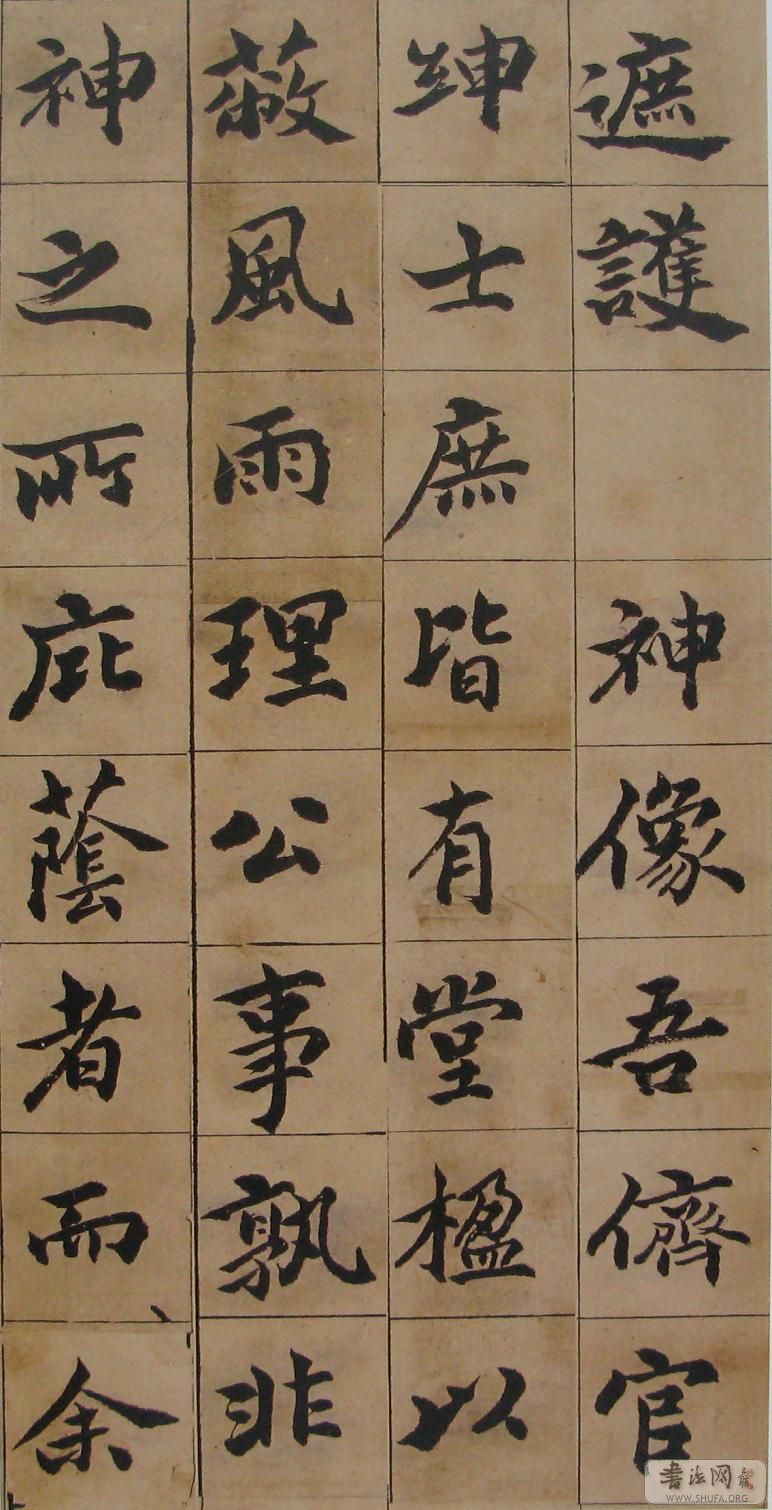 遮護 神像吾儕官
紳士庶皆有堂楹以
蔽風雨理公事孰非
神之所庇蔭者而余
書法网
WWW.SHUFA.ORG